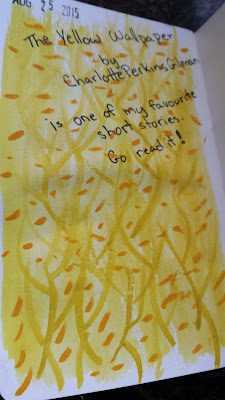 AUG 25 2015
The Yellow Wallpaper
by
Charlotte Perkins Gilman
is one of my favourite
short stories.
Go read it!